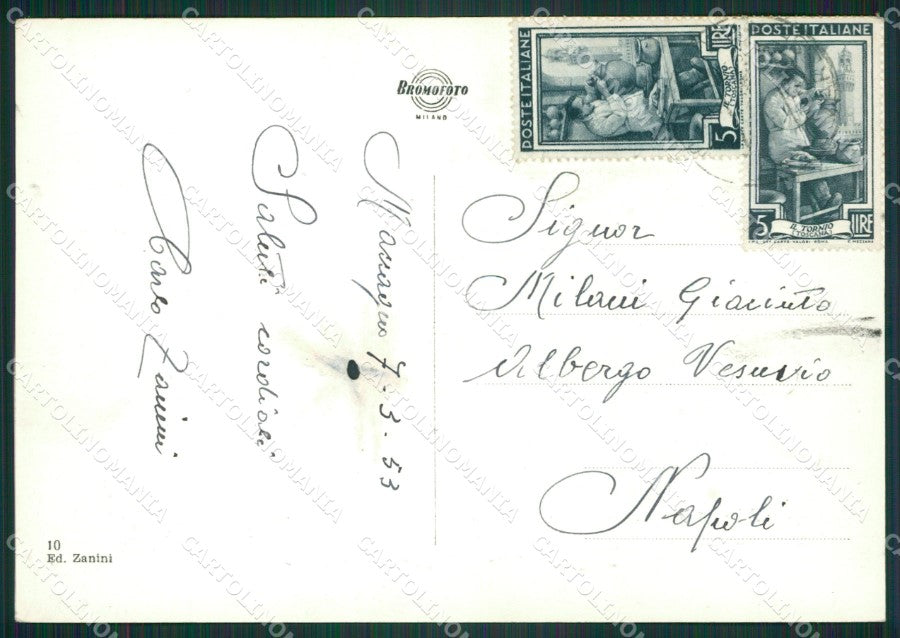 BROMOFOTO
MILANO
POSTE ITALIANE
IL TORNIO
(TOSCANA)
5 LIRE
POSTE ITALIANE
IL TORNIO
(TOSCANA)
5 LIRE
IST. POL. CARTE VALORI - ROMA
C. MEZZANA
7-3-53
Saluti cordiali
Carlo Zanini
Signor
Milani Giacinto
Albergo Vesuvio
Napoli
10
Ed. Zanini
CARTOLINOMANIA